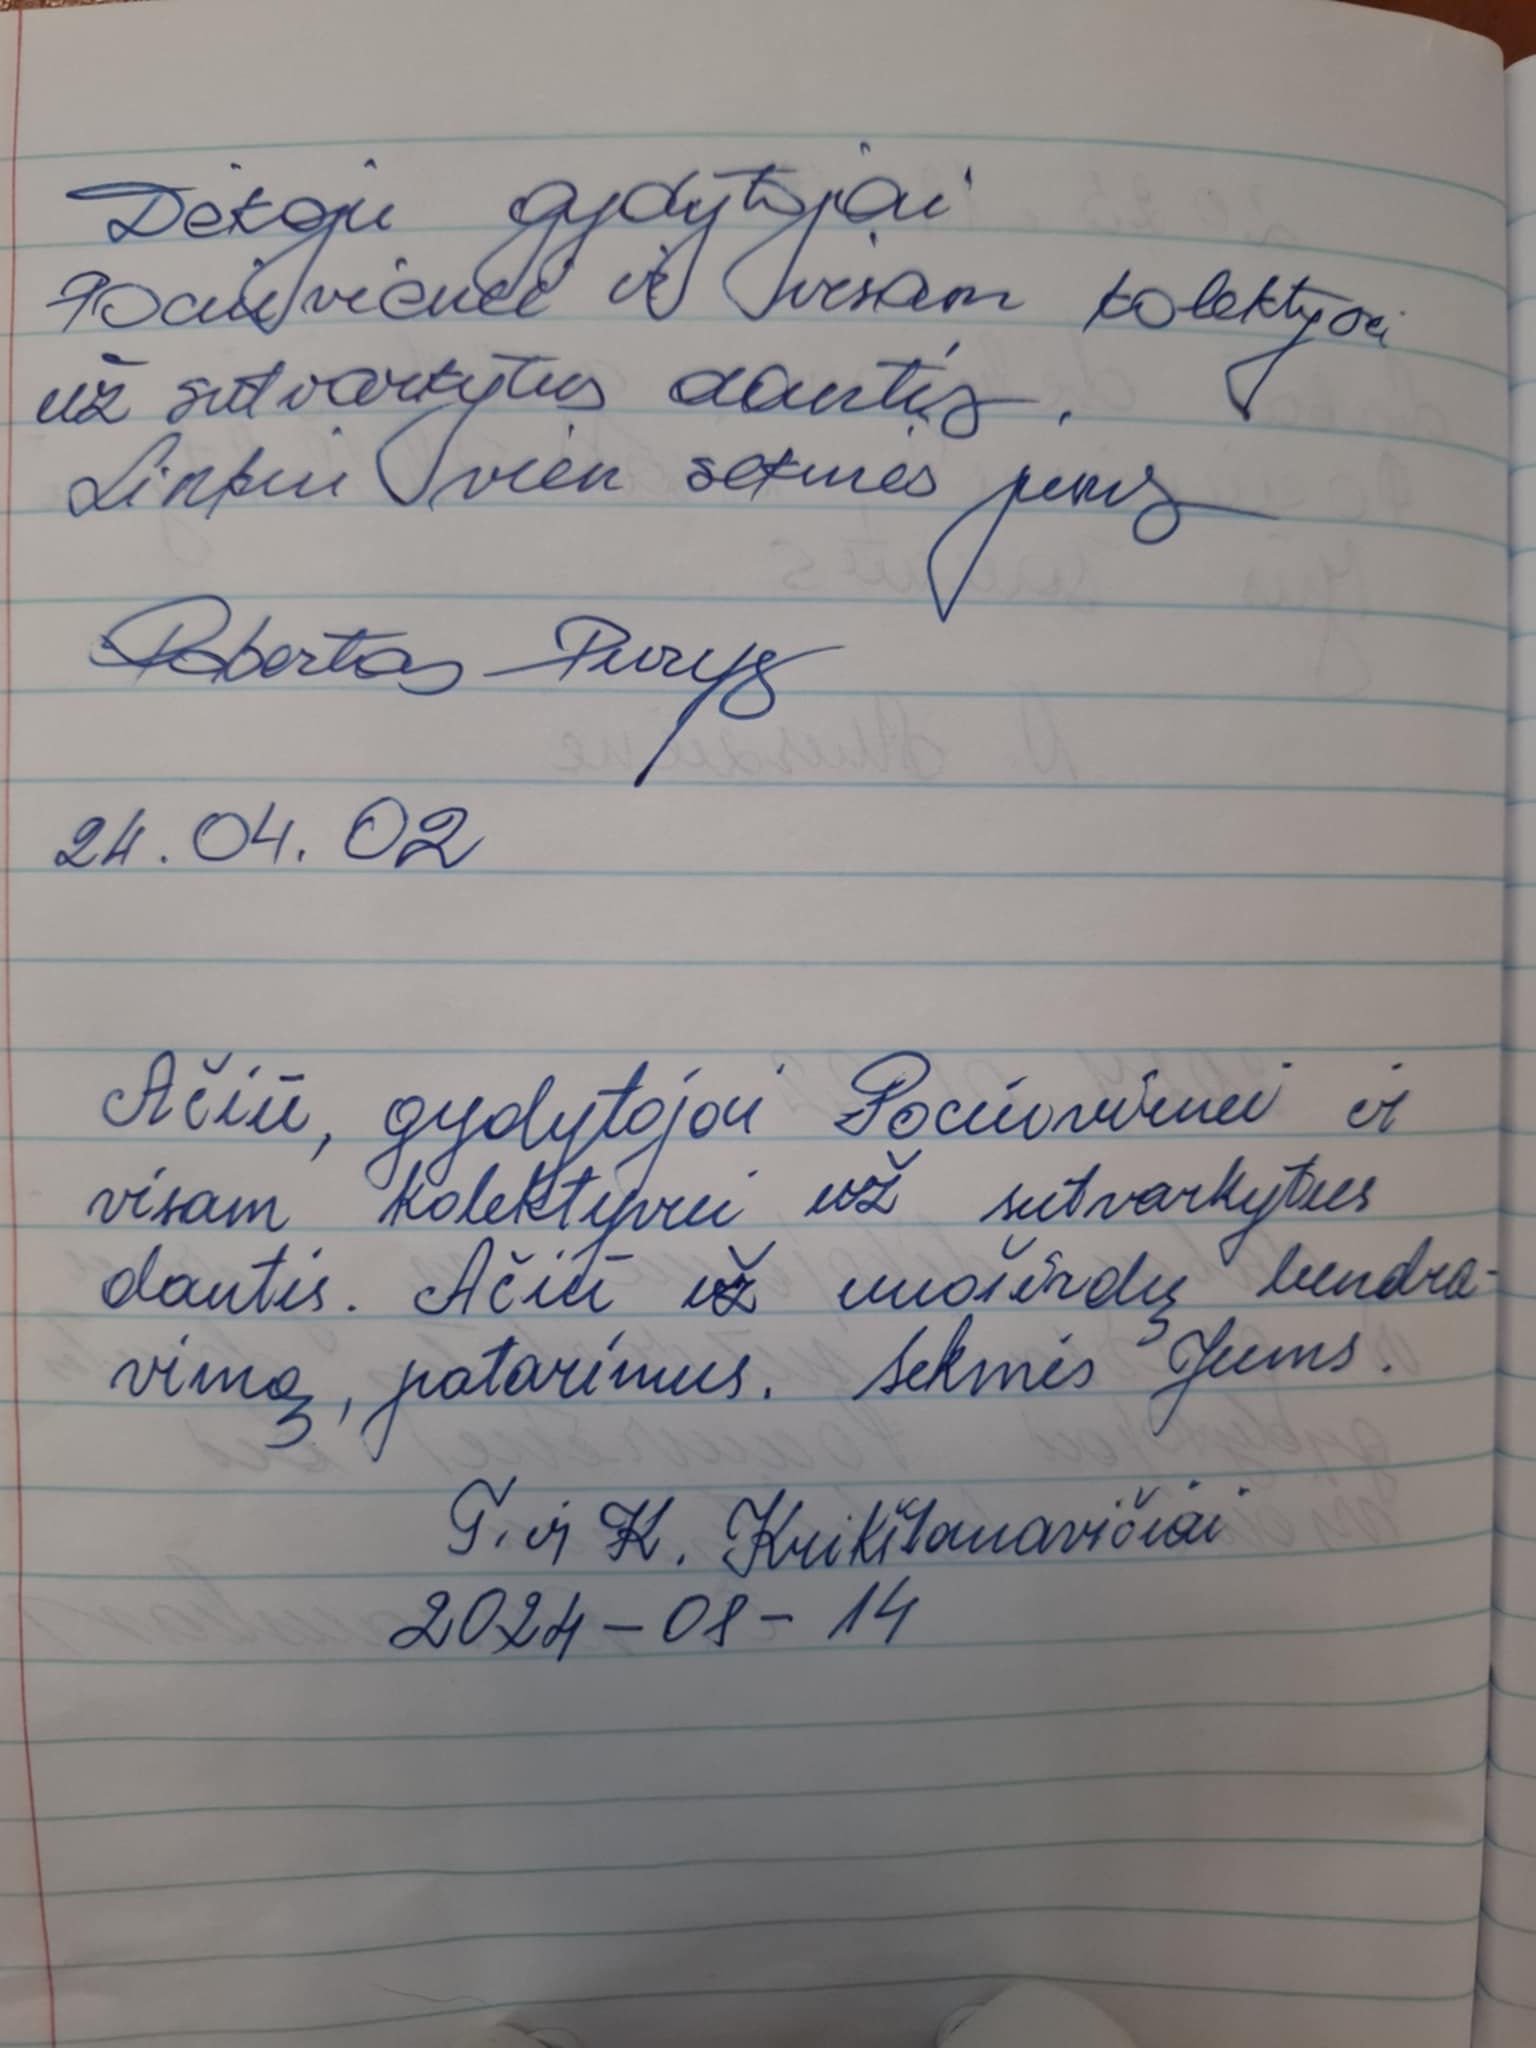 Dėkoju gydytojai
Pociuvienei ir visam kolektyvui
už sutvarkytus dantis.
Linkiu vien sėkmės jums
Robertas Purys
24.04.02
Ačiū, gydytojai Pociuvienei ir
visam kolektyvui už sutvarkytus
dantis. Ačiū už nuoširdų bendra-
vimą, patarimus. Sėkmės Jums.
T. ir K. Krikštanavičiai
2024-08-14